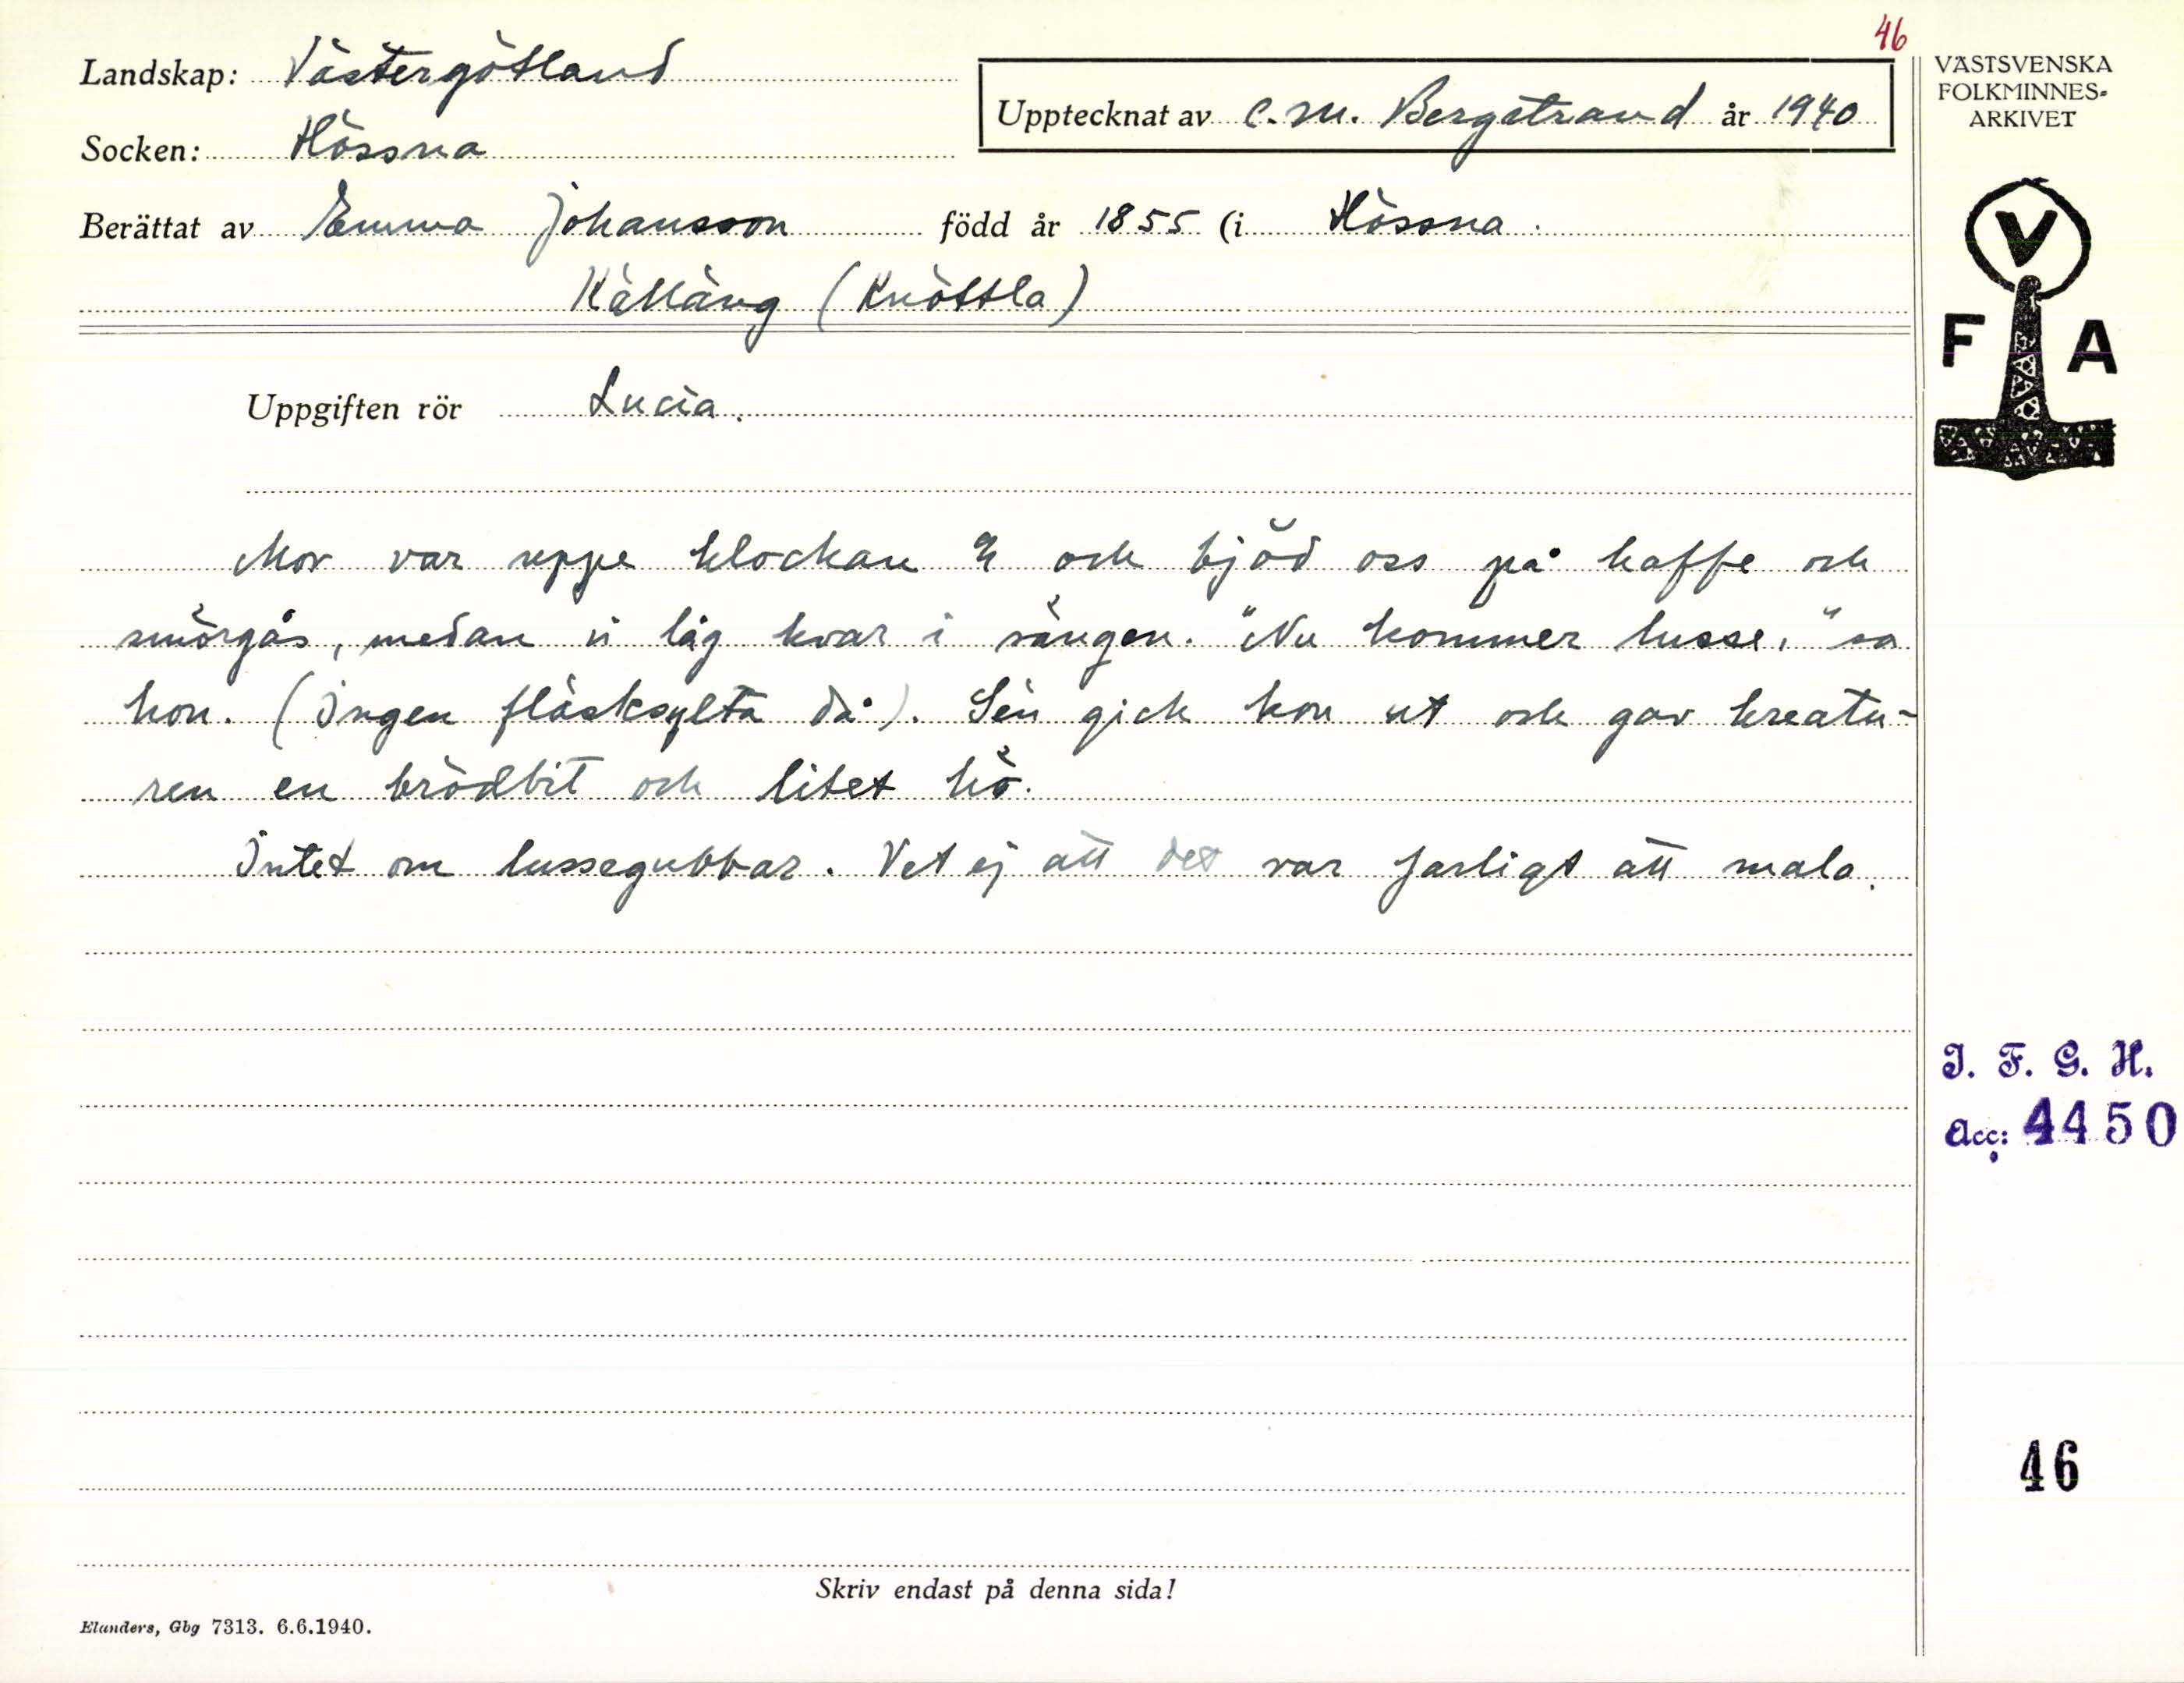 46
Landskap: Västergötland
Upptecknat av C. M. Bergstrand år 1940
Socken: Hössna
Berättat av Emma Johansson född år 1855 (i Hössna.
Källäng (Knöttla)
Uppgiften rör Lucia.
Mor var uppe klockan och bjöd oss på kaffe och
smörgås, medan vi låg kvar i sängen. "Nu kommer lusse," sa
hon. (Ingen fläsksylta då). Sen gick hon ut och gav kreatu-
ren en brödbit och litet hö.
Intet om lussegubbar. Vet ej att det var farligt att mala.
Skriv endast på denna sida!
Elanders, Gbg 7313. 6.6.1940.
VÄSTSVENSKA
FOLKMINNES-
ARKIVET
V
F A
I. F. G. H.
Acc: 4450
46